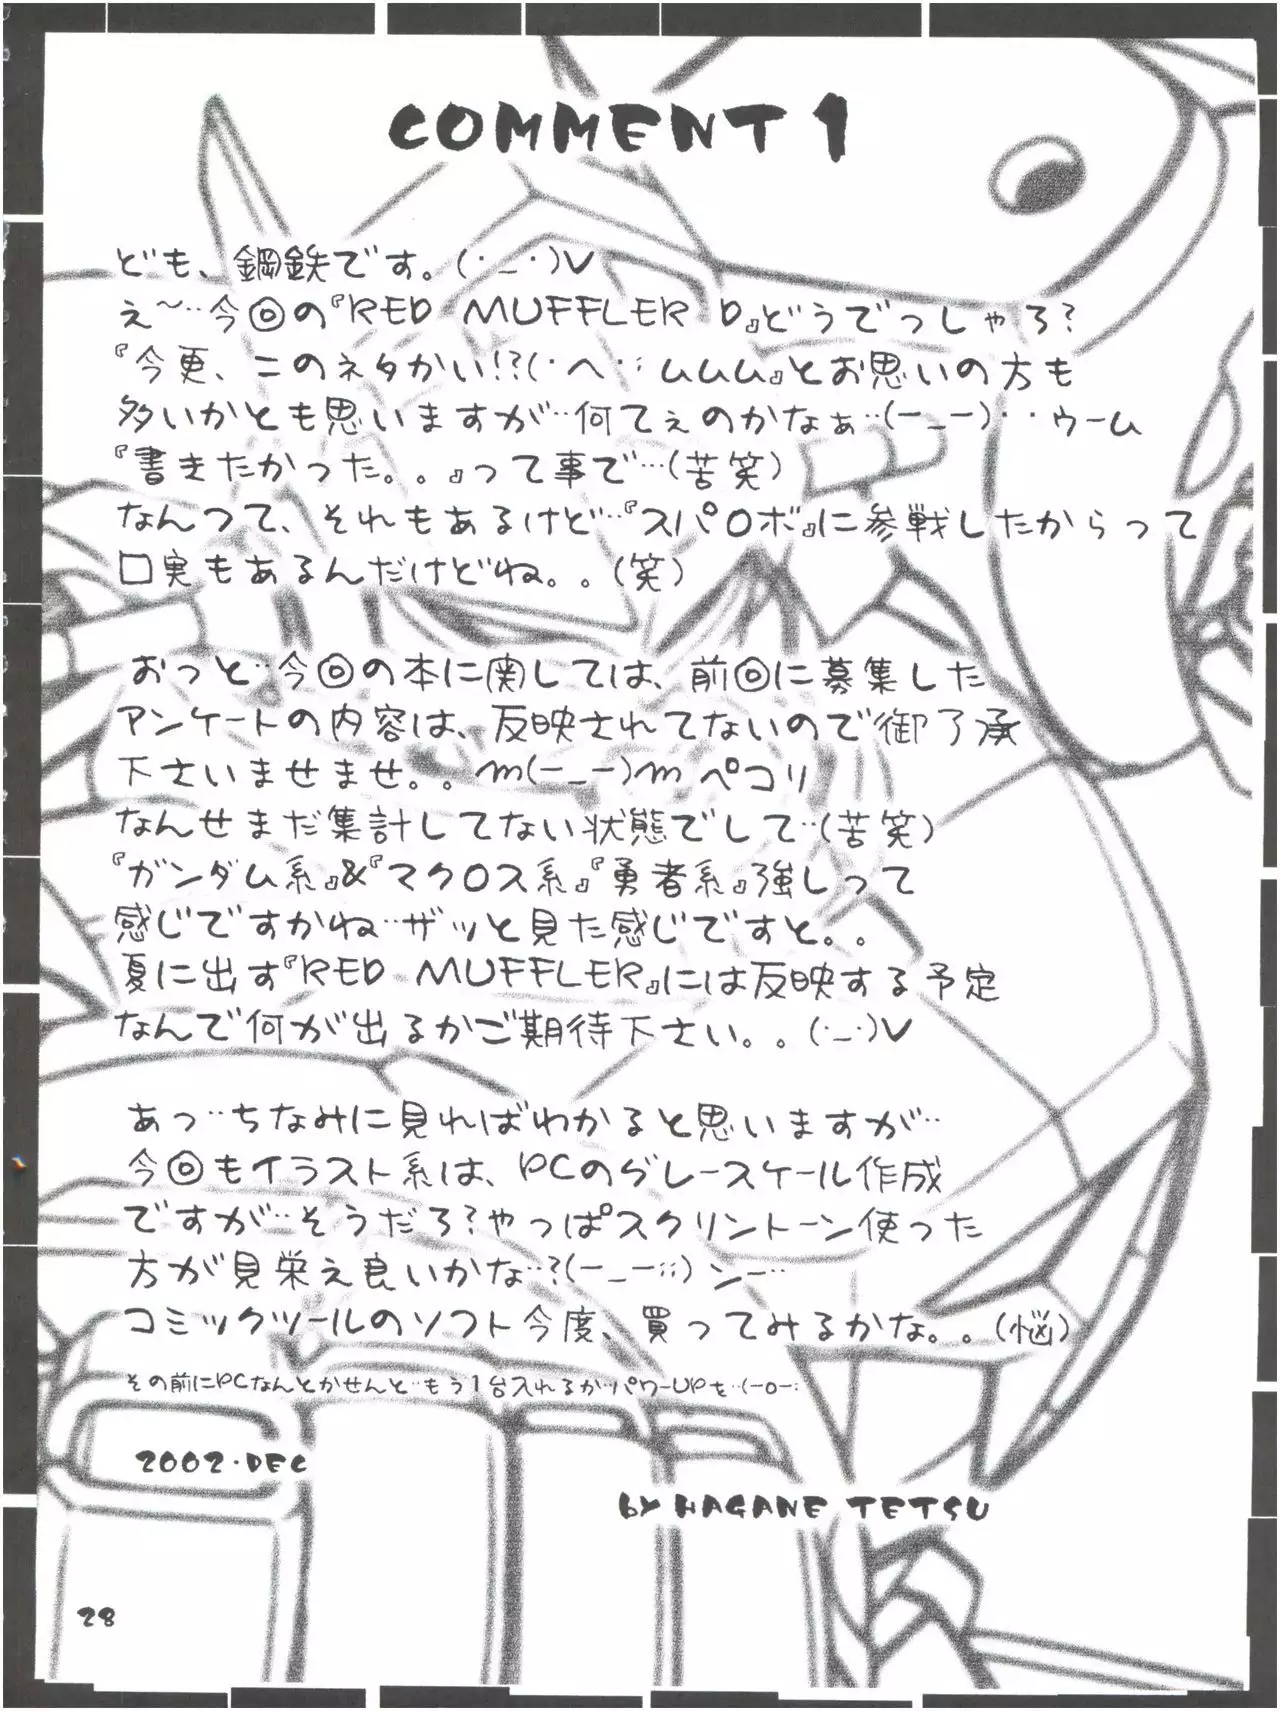 COMMENT 1
ども、鋼鉄です。(･_･)V
え〜‥今回の『RED MUFFLER D』どうでっしゃろ?
『今更、このネタかい!?(･へ･;ムムム』とお思いの方も
多いかとも思いますが‥何てぇのかなぁ‥(ー_ー)‥ウーム
『書きたかった。。』って事で‥(苦笑)
なんつて、それもあるけど‥『スパロボ』に参戦したからって
口実もあるんだけどね。。(笑)
おっと‥今回の本に関しては、前回に募集した
アンケートの内容は、反映されてないので御了承
下さいませませ。。m(ー_ー)m ペコリ
なんせまだ集計してない状態でして‥(苦笑)
『ガンダム系』&『マクロス系』『勇者系』強しって
感じですかね‥ザッと見た感じですと。。
夏に出す『RED MUFFLER』には反映する予定
なんで何が出るかご期待下さい。。(･_･)V
あっ‥ちなみに見ればわかると思いますが‥
今回もイラスト系は、PCのグレースケール作成
ですが‥そうだろ?やっぱスクリントーン使った
方が見栄え良いかな‥?(ー_ー;;)ンー‥
コミックツールのソフト今度、買ってみるかな。。(悩)
その前にPCなんとかせんと‥もう1台入れるか･パワーUPを‥(ーoー;
2002·DEC
by HAGANE TETSU
28